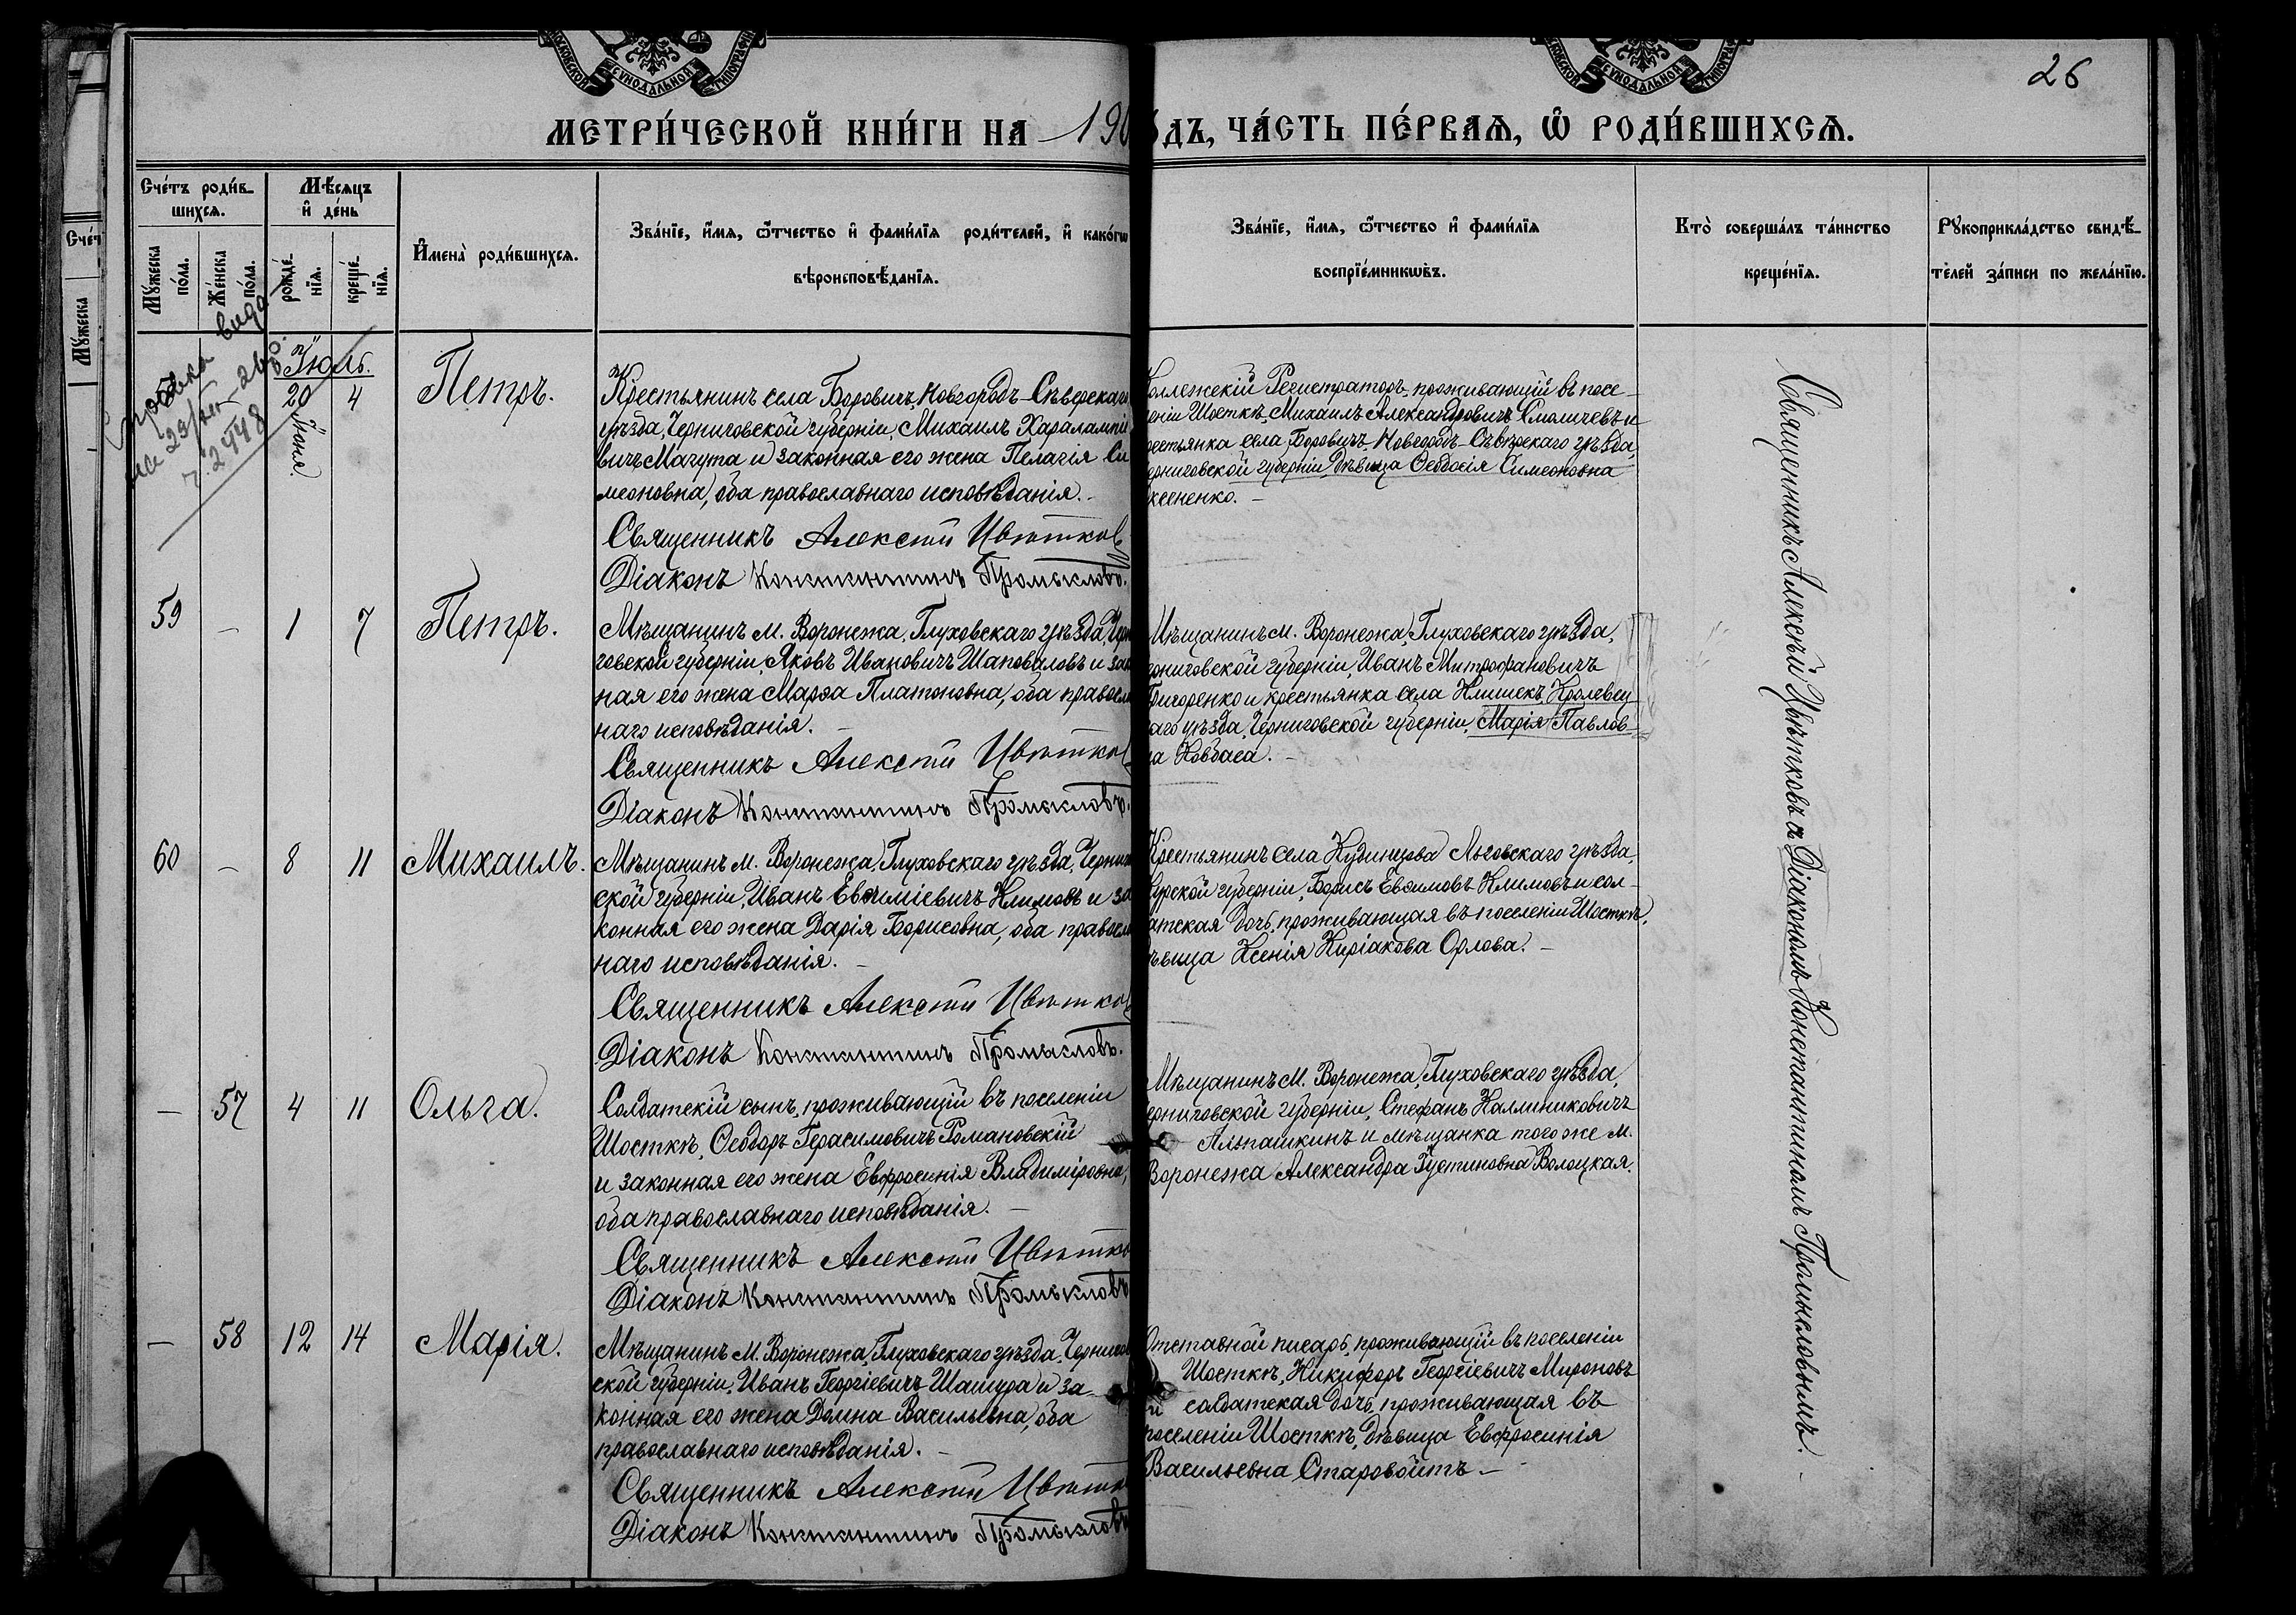 МОСКОВСКОЙ СѴНОДАЛЬНОЙ ТИПОГРАФІИ
МОСКОВСКОЙ СѴНОДАЛЬНОЙ ТИПОГРАФІИ
26
МЕТРИ́ЧЕСКОЙ КНИ́ГИ НА 190
ОДЪ, ЧА́СТЬ ПЕ́РВАѦ, Ѽ РОДИ́ВШИХСѦ.
Сче́тъ роди́в-
шихсѧ.
Мꙋ́жеска по́ла.
Же́нска по́ла.
Мѣ́сѧцъ
и҆ де́нь
рожде́-
нїѧ.
креще́-
нїѧ.
И҆мена̀ роди́вшихсѧ.
Зва́нїе, и҆́мѧ, ѻ҆́тчество и҆ фами́лїѧ роди́телей, и҆ како́гѡ
вѣроисповѣ́данїѧ.
Зва́нїе, и҆́мѧ, ѻ҆́тчество и҆ фами́лїѧ
воспрїе́мникѡвъ.
Кто̀ соверша́лъ та́инство
креще́нїѧ.
Рꙋкоприкла́дство свидѣ́-
телей за́писи по жела́нїю.
Сче́т
Мꙋ́жеска
Справка выда
Іюль.
20 4
Іюня.
Петръ.
Крестьянинъ села Боровичъ, Новгородъ-Сѣверскаго
уѣзда, Черниговской губерніи, Михаилъ Харалампіе
вичъ Мачута и законная его жена Пелагія Си
меоновна, оба православнаго исповѣданія.-
Священникъ Алексѣй Цвѣтков
Діаконъ Константинъ Промысловъ.
оллежскій Регистраторъ, проживающій въ посе-
еніи Шосткѣ, Михаилъ Александровичъ Смаличевъ и
рестьянка села Боровичъ, Новгородъ-Сѣверскаго уѣзда,
ерниговской губерніи, дѣвица Ѳеодосія Симеоновна
ксененко.-
59 - 1 7 Петръ.
Мѣщанинъ м. Воронежа, Глуховскаго уѣзда, Черни
говской губерніи, Яковъ Ивановичъ Шаповаловъ и зак
ная его жена Марѳа Платоновна, оба правосла
наго исповѣданія.-
Священникъ Алексѣй Цвѣтков
Діаконъ Константинъ Промысловъ.
Мѣщанинъ м. Воронежа, Глуховскаго уѣзда,
ерниговской губерніи, Иванъ Митрофановичъ
Григоренко и крестьянка села Клишекъ, Кролевец-
аго уѣзда, Черниговской губерніи, Марія Павлов-
на Ковбаса.-
60 - 8 11 Михаилъ.
Мѣщанинъ м. Воронежа, Глуховскаго уѣзда, Чернигов
ской губерніи, Иванъ Евѳиміевичъ Климовъ и за
конная его жена Дарія Борисовна, оба правосла
наго исповѣданія.-
Священникъ Алексѣй Цвѣтков
Діаконъ Константинъ Промысловъ.
Крестьянинъ села Кудинцова Льговскаго уѣзда,
Курской губерніи, Борисъ Евѳимовъ Климовъ и сол-
атская дочь, проживающая въ поселеніи Шосткѣ,
ѣвица Ксенія Киріакова Орлова.-
- 57 4 11 Ольга.
Солдатскій сынъ, проживающій въ поселеніи
Шосткѣ, Ѳеодоръ Герасимовичъ Романовскій
и законная его жена Евфросинія Владиміровна,
оба православнаго исповѣданія.-
Священникъ Алексѣй Цвѣтко
Діаконъ Константинъ Промысловъ
Мѣщанинъ м. Воронежа, Глуховскаго уѣзда,
ерниговской губерніи, Стефанъ Каллиниковичъ
Алпашкинъ и мѣщанка того же м.
Воронежа Александра Іустиновна Волоцкая.
- 58 12 14 Марія.
Мѣщанинъ м. Воронежа, Глуховскаго уѣзда, Чернигов
ской губерніи, Иванъ Георгіевичъ Шашура и за-
конная его жена Домна Васильевна, оба
православнаго исповѣданія.-
Священникъ Алексѣй Цвѣтко
Діаконъ Константинъ Промыслов
Отставной писарь, проживающій въ поселеніи
Шосткѣ, Никифоръ Георгіевичъ Мироновъ
и солдатская дочь, проживающая въ
поселеніи Шосткѣ, дѣвица Евфросинія
Васильевна Старовойтъ.-
Священникъ Алексѣй Цвѣтковъ съ Діакономъ Константиномъ Промысловымъ.